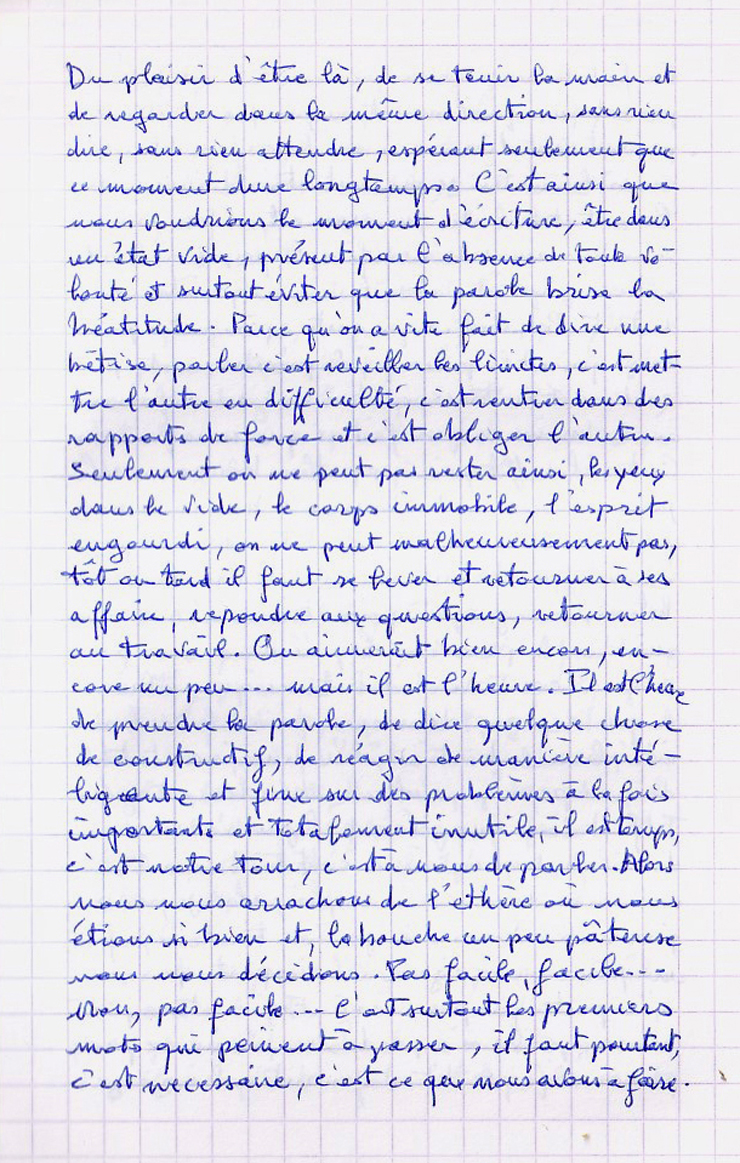 Du plaisir d'être là, de se tenir la main et
de regarder dans la même direction, sans rien
dire, sans rien attendre, espérant seulement que
ce moment dure longtemps. C'est ainsi que
nous voudrions le moment d'écriture, être dans
un état vide, présent par l'absence de toute vo-
lonté et surtout éviter que la parole brise la
béatitude. Parce qu'on a vite fait de dire une
bêtise, parler c'est reveiller les limites, c'est met-
tre l'autre en difficulté, c'est rentrer dans des
rapports de force et c'est obliger l'autre.
Seulement on ne peut pas rester ainsi, les yeux
dans le vide, le corps immobile, l'esprit
engourdi, on ne peut malheureusement pas,
tôt ou tard il faut se lever et retourner à ses
affaire, repondre aux questions, retourner
au travail. On aimerait bien encore, en-
core un peu... mais il est l'heure. Il est l'heure
de prendre la parole, de dire quelque chose
de constructif, de réagir de manière inté-
ligente et fine sur des problèmes à la fois
importants et totalement inutile, il est temps,
c'est notre tour, c'est à nous de parler. Alors
nous nous arrachons de l'ethère où nous
étions si bien et, la bouche un peu pâteuse
nous nous décidons. Pas facile, facile...
Non, pas facile... C'est surtout les premiers
mots qui peinent à passer, il faut pourtant,
c'est necessaire, c'est ce que nous avons à faire.